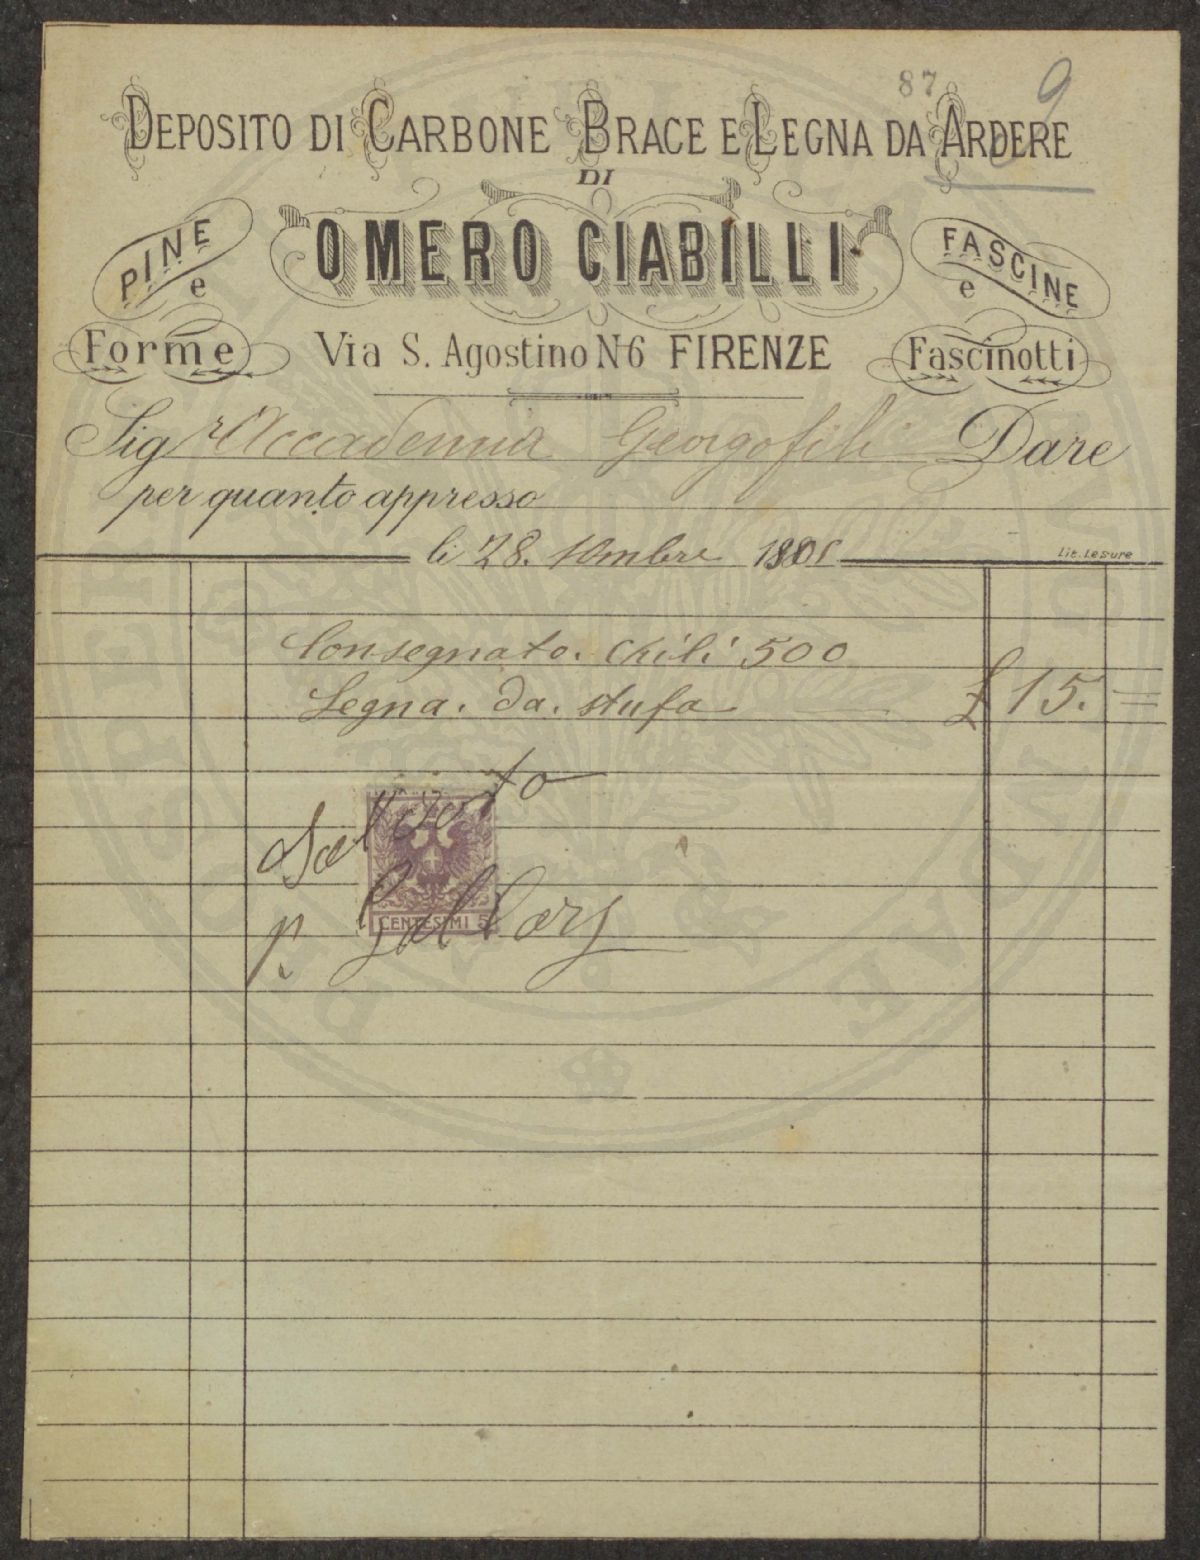 87 9
DEPOSITO DI CARBONE BRACE E LEGNA DA ARDERE
DI
OMERO CIABILLI
PINE
e
Forme
FASCINE
e
Fascinotti
Via S. Agostino N6 FIRENZE
Sigr Accademia Georgofili Dare
per quanto appresso
li 28. 10mbre 1901
Lit. Lesure
Consegnato. Chili 500
Legna. da. stufa £ 15. =
Saldato
CENTESIMI 5
p.
PROSPERITATI PUBLICAE AUGENDAE